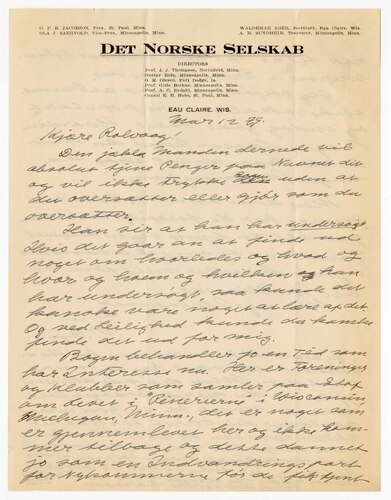 O. P. B. JACOBSON, Pres., St. Paul, Minn.
OLA J. SAERVOLD, Vice-Pres., Minneapolis, Minn.
WALDEMAR AGER, Secretary, Eau Claire, Wis.
A. H. SUNDHEIM, Treasurer, Minneapolis, Minn.
DET NORSKE SELSKAB
DIRECTORS
Prof. J. J. Thompson, Northfield, Minn.
Gustav Eide, Minneapolis, Minn.
O. M. Oleson, Fort Dodge, Ia.
Prof. Gisle Bothne, Minneapolis, Minn.
Prof. A. C. Erdahl, Minneapolis, Minn.
Consul E. H. Hobe, St. Paul, Minn.
EAU CLAIRE, WIS.
Mar 12 29.
Kjære Rolvaag!
Den jækla Manden dernede vil
absolut tjene Penger paa Navnet dit
og vil ikke trykke Bogen uden at
du oversætter eller gjør som du
oversætter.
Han sir at han har undersøgt.
Hvis det gaar an at finde ud
noget om hvorledes og hvad og
hvor og hvem og hvilken og han
har undersøgt, saa kunde det
kanske være noget at lære af det
Og ved Leilighed kunde du kanske
finde det ud for mig.
Bogen behandler jo en Tid som
har Interesse nu. Her er Foreninger
og Klubber som samler paa Stof
om devet i "Pinerierne" i Wisconsin,
Michigan, Minn., det er noget som
er gjennemlevet her og ikke kom-
mer tilbage og dette dannet
jo som en Indvandrings port
for Nykommerne før de fik kjent